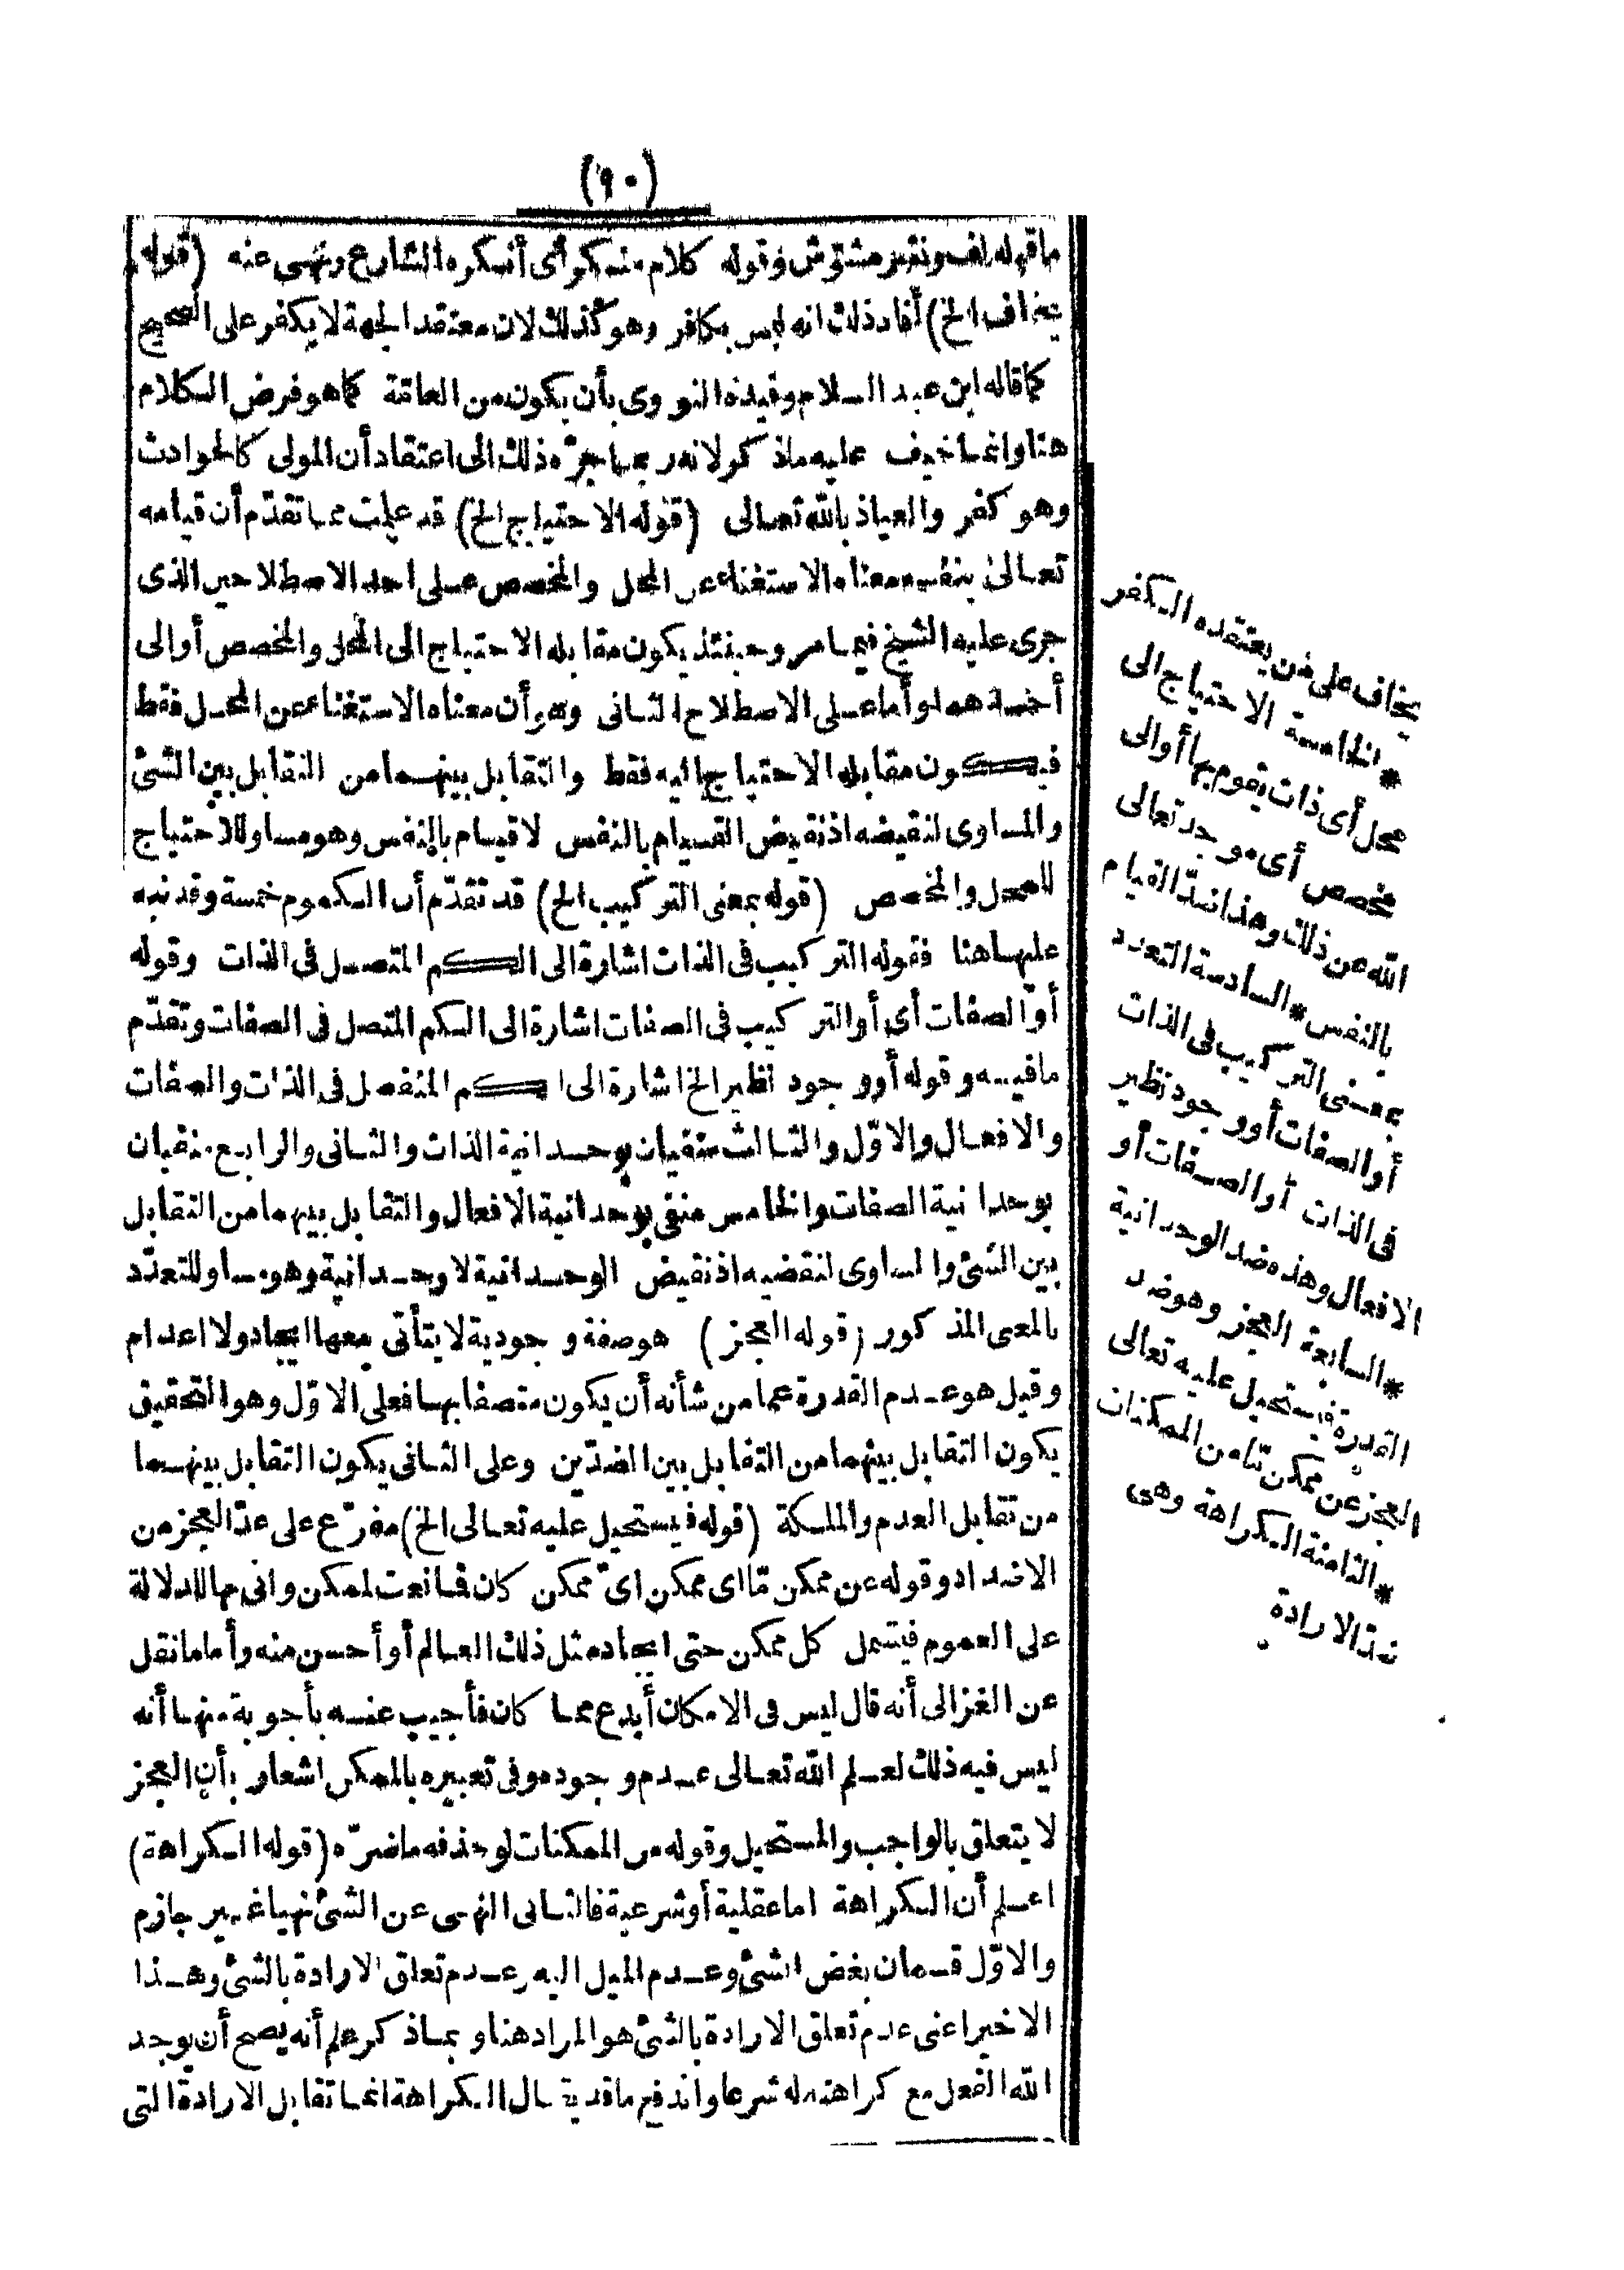 (٩٠)
ما قبله لف ونشر مشوش وقوله كلام منكر أى أنكره الشارع ونهى عنه (قوله
يخاف الخ) أفاد ذلك انه ليس بكافر وهو كذلك لان معتقد الجهة لا يكفر على الصحيح
كما قاله ابن عبد السلام وقيده النووى بأن يكون من العامة كما هو فرض الكلام
هنا وانما خيف عليه ماذكر لانه ربما جره ذلك الى اعتقاد أن المولى كالحوادث
وهو كفر والعياذ بالله تعالى (قوله الاحتياج الخ) قد علمت مما تقدّم أن قيامه
تعالى بنفسه معناه الاستغناء عن المحل والمخصص على احد الاصطلاحين الذى
جرى عليه الشيخ فيما مر وحينئذ يكون مقابله الاحتياج الى المحل والمخصص أو الى
أحدهما وأما على الاصطلاح الثانى وهو أن معناه الاستغناء عن المحل فقط
فيكون مقابله الاحتياج اليه فقط والتقابل بينهما من التقابل بين الشئ
والمساوى لنقيضه اذ نقيض القيام بالنفس لا قيام بالنفس وهو مساو للاحتياج
للمحل والمخصص (قوله بمعنى التركيب الخ) قد تقدّم أن الكموم خمسة وقد نبه
عليها هنا فقوله التركيب فى الذات اشارة الى الكم المتصل فى الذات وقوله
أو الصفات أى أو التركيب فى الصفات اشارة الى الكم المتصل فى الصفات وتقدّم
ما فيه وقوله أو وجود نظير الخ اشارة الى الكم المنفصل فى الذات والصفات
والافعال والاوّل والثالث منفيان بوحدانية الذات والثانى والرابع منفيان
بوحدانية الصفات والخامس منفى بوحدانية الافعال والتقابل بينهما من التقابل
بين الشئ والمساوى لنقضيه اذ نقيض الوحدانية لا وحدانية وهو مساو للتعدّد
بالمعنى المذكور (قوله العجز) هو صفة وجودية لا يتأتى معها ايجاد ولا اعدام
وقيل هو عدم القدرة عما من شأنه أن يكون متصفا بها فعلى الاوّل وهو التحقيق
يكون التقابل بينهما من التقابل بين الضدّين وعلى الثانى يكون التقابل بينهما
من تقابل العدم والملكة (قوله فيستحيل عليه تعالى الخ) مفرّع على عدّ العجز من
الاضداد وقوله عن ممكن مّا اى ممكن اىّ ممكن كان فما نعت لممكن واتى بها للدلالة
على العموم فيشمل كل ممكن حتى ايجاد مثل ذلك العالم أو أحسن منه وأما ما نقل
عن الغزالى أنه قال ليس فى الامكان أبدع مما كان فأجيب عنه بأجوبة منها أنه
ليس فيه ذلك لعلم الله تعالى عدم وجوده وفى تعبيره بالممكن اشعار بأن العجز
لا يتعلق بالواجب والمستحيل وقوله من الممكنات لو حذفه ما ضرّه (قوله الكراهة)
اعلم أن الكراهة اما عقلية أو شرعية فالثانى النهى عن الشئ نهيا غير جازم
والاوّل قسمان بغض الشئ وعدم الميل اليه وعدم تعلق الارادة بالشئ وهذا
الاخير اعنى عدم تعلق الارادة بالشئ هو المراد هنا وبما ذكر علم أنه يصح أن يوجد
الله الفعل مع كراهته له شرعا واندفع ما قد يقال الكراهة انما تقابل الارادة التى
يخاف على من يعتقده الكفر
* الخامسة الاحتياج الى
محل أى ذات يقوم بها أو الى
مخصص أى موجد تعالى
الله عن ذلك وهذا ضدّ القيام
بالنفس * السادسة التعدد
بمعنى التركيب فى الذات
أو الصفات أو وجود نظير
فى الذات أو الصفات أو
الافعال وهذه ضد الوحدانية
* السابعة العجز وهو ضد
القدرة فيستحيل عليه تعالى
العجز عن ممكن مّا من الممكنات
* الثامنة الكراهة وهى
ضدّ الارادة